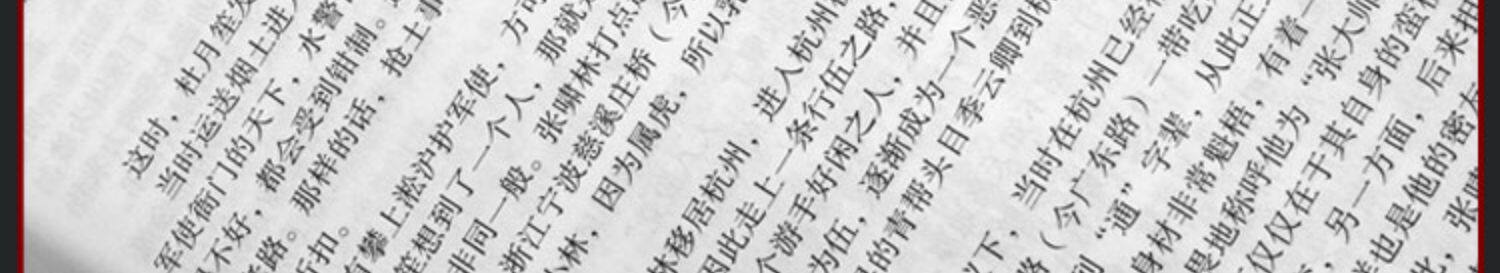 这时，杜月笙发
当时运送烟土进入
军使衙门的天下，水警
不好，都会受到钳制。
路。那样的话，抢土事
折扣。
方可
攀上淞沪护军使，那就
笙想到了一个人，张啸林打点
非同一般。
浙江宁波慈溪庄桥（今
小林，因为属虎，所以乳
林移居杭州，进入杭州
因此走上一条行伍之路，
个游手好闲之人，并且
为伍，逐渐成为一个恶
的青帮头目季云卿到杭
以下，当时在杭州已经
路（今广东路）一带吃
到“通”字辈，从此正
身材非常魁梧，有着一
畏地称呼他为“张大帅
仅仅在于其自身的蛮
，另一方面，后来把
也是他的密友
此，张啸